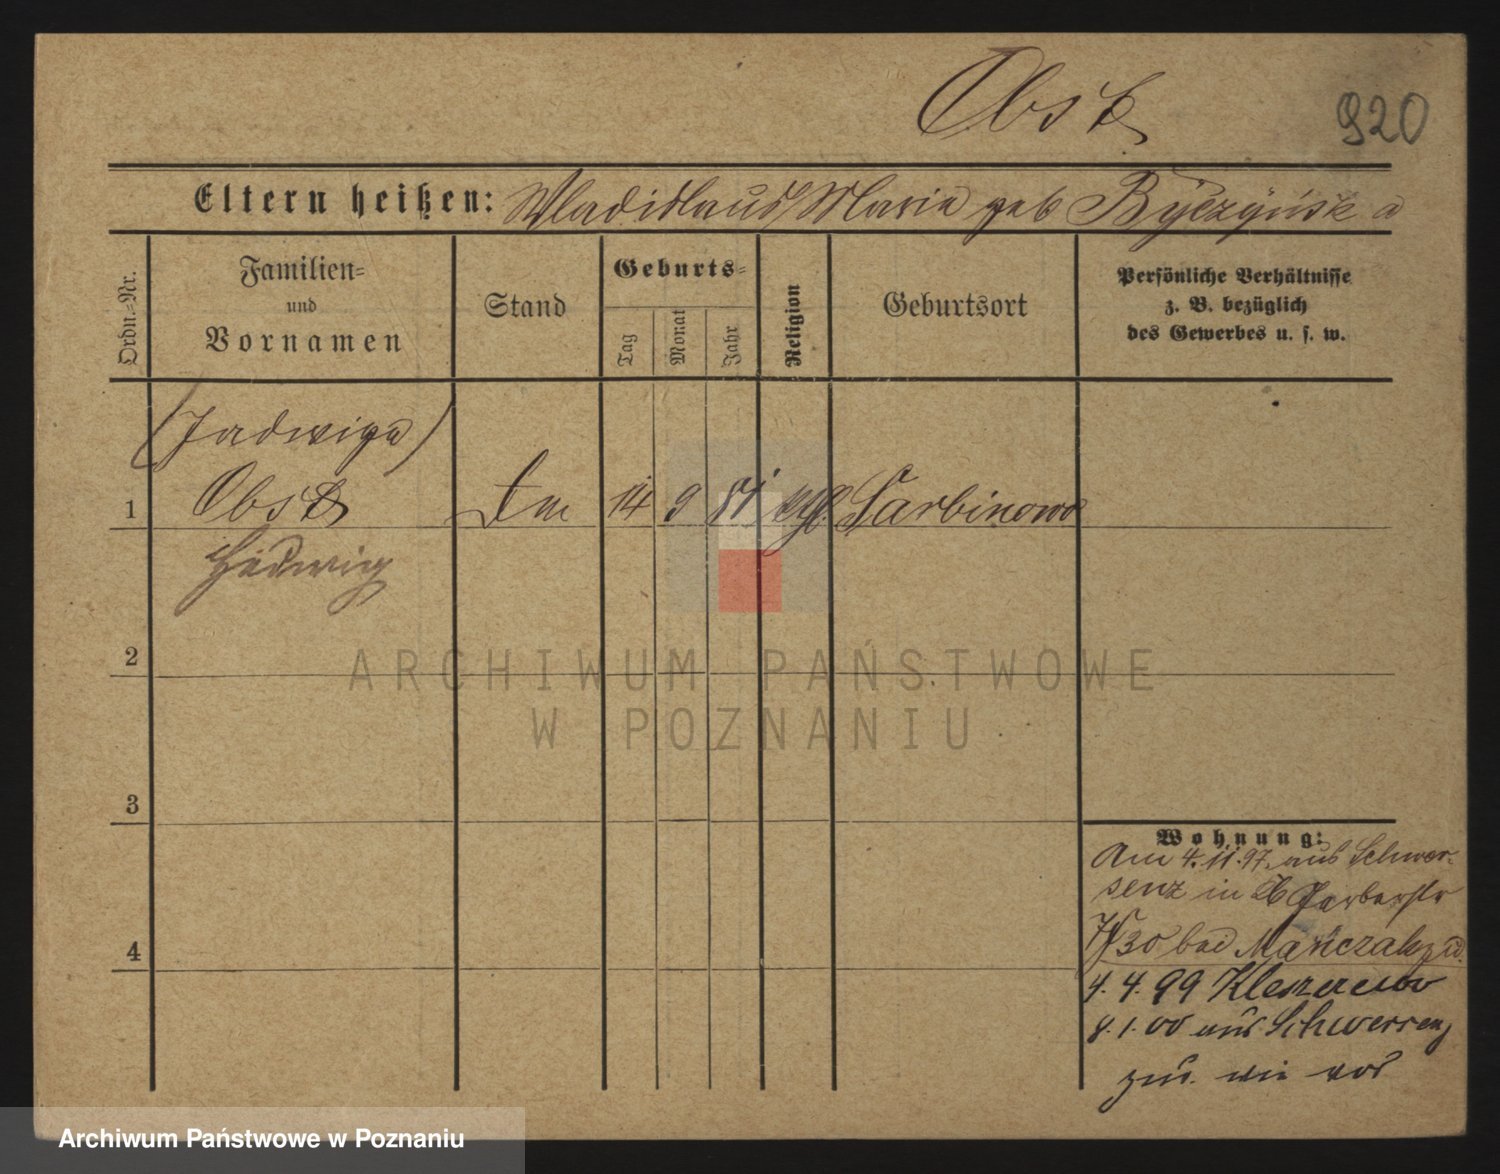 Obst
920
Eltern heißen: Wladislaus / Marie geb Byczyńska
Ordn.-Nr.
Familien-
und
Vornamen
Stand
Geburts-
Tag
Monat
Jahr
Religion
Geburtsort
Persönliche Verhältnisse
z. B. bezüglich
des Gewerbes u. s. w.
(Jadwiga)
1 Obst 14 9 81 Sarbinowo
Hedwig
2
ARCHIWUM PAŃSTWOWE
W POZNANIU
3
Wohnung:
Am 4.11.97. aus Schwer-
senz in Gerberstr
30 bei Mańczak
4
4. 4. 99
8. 1. 00 aus Schwersenz
zu. wie vor
Archiwum Państwowe w Poznaniu